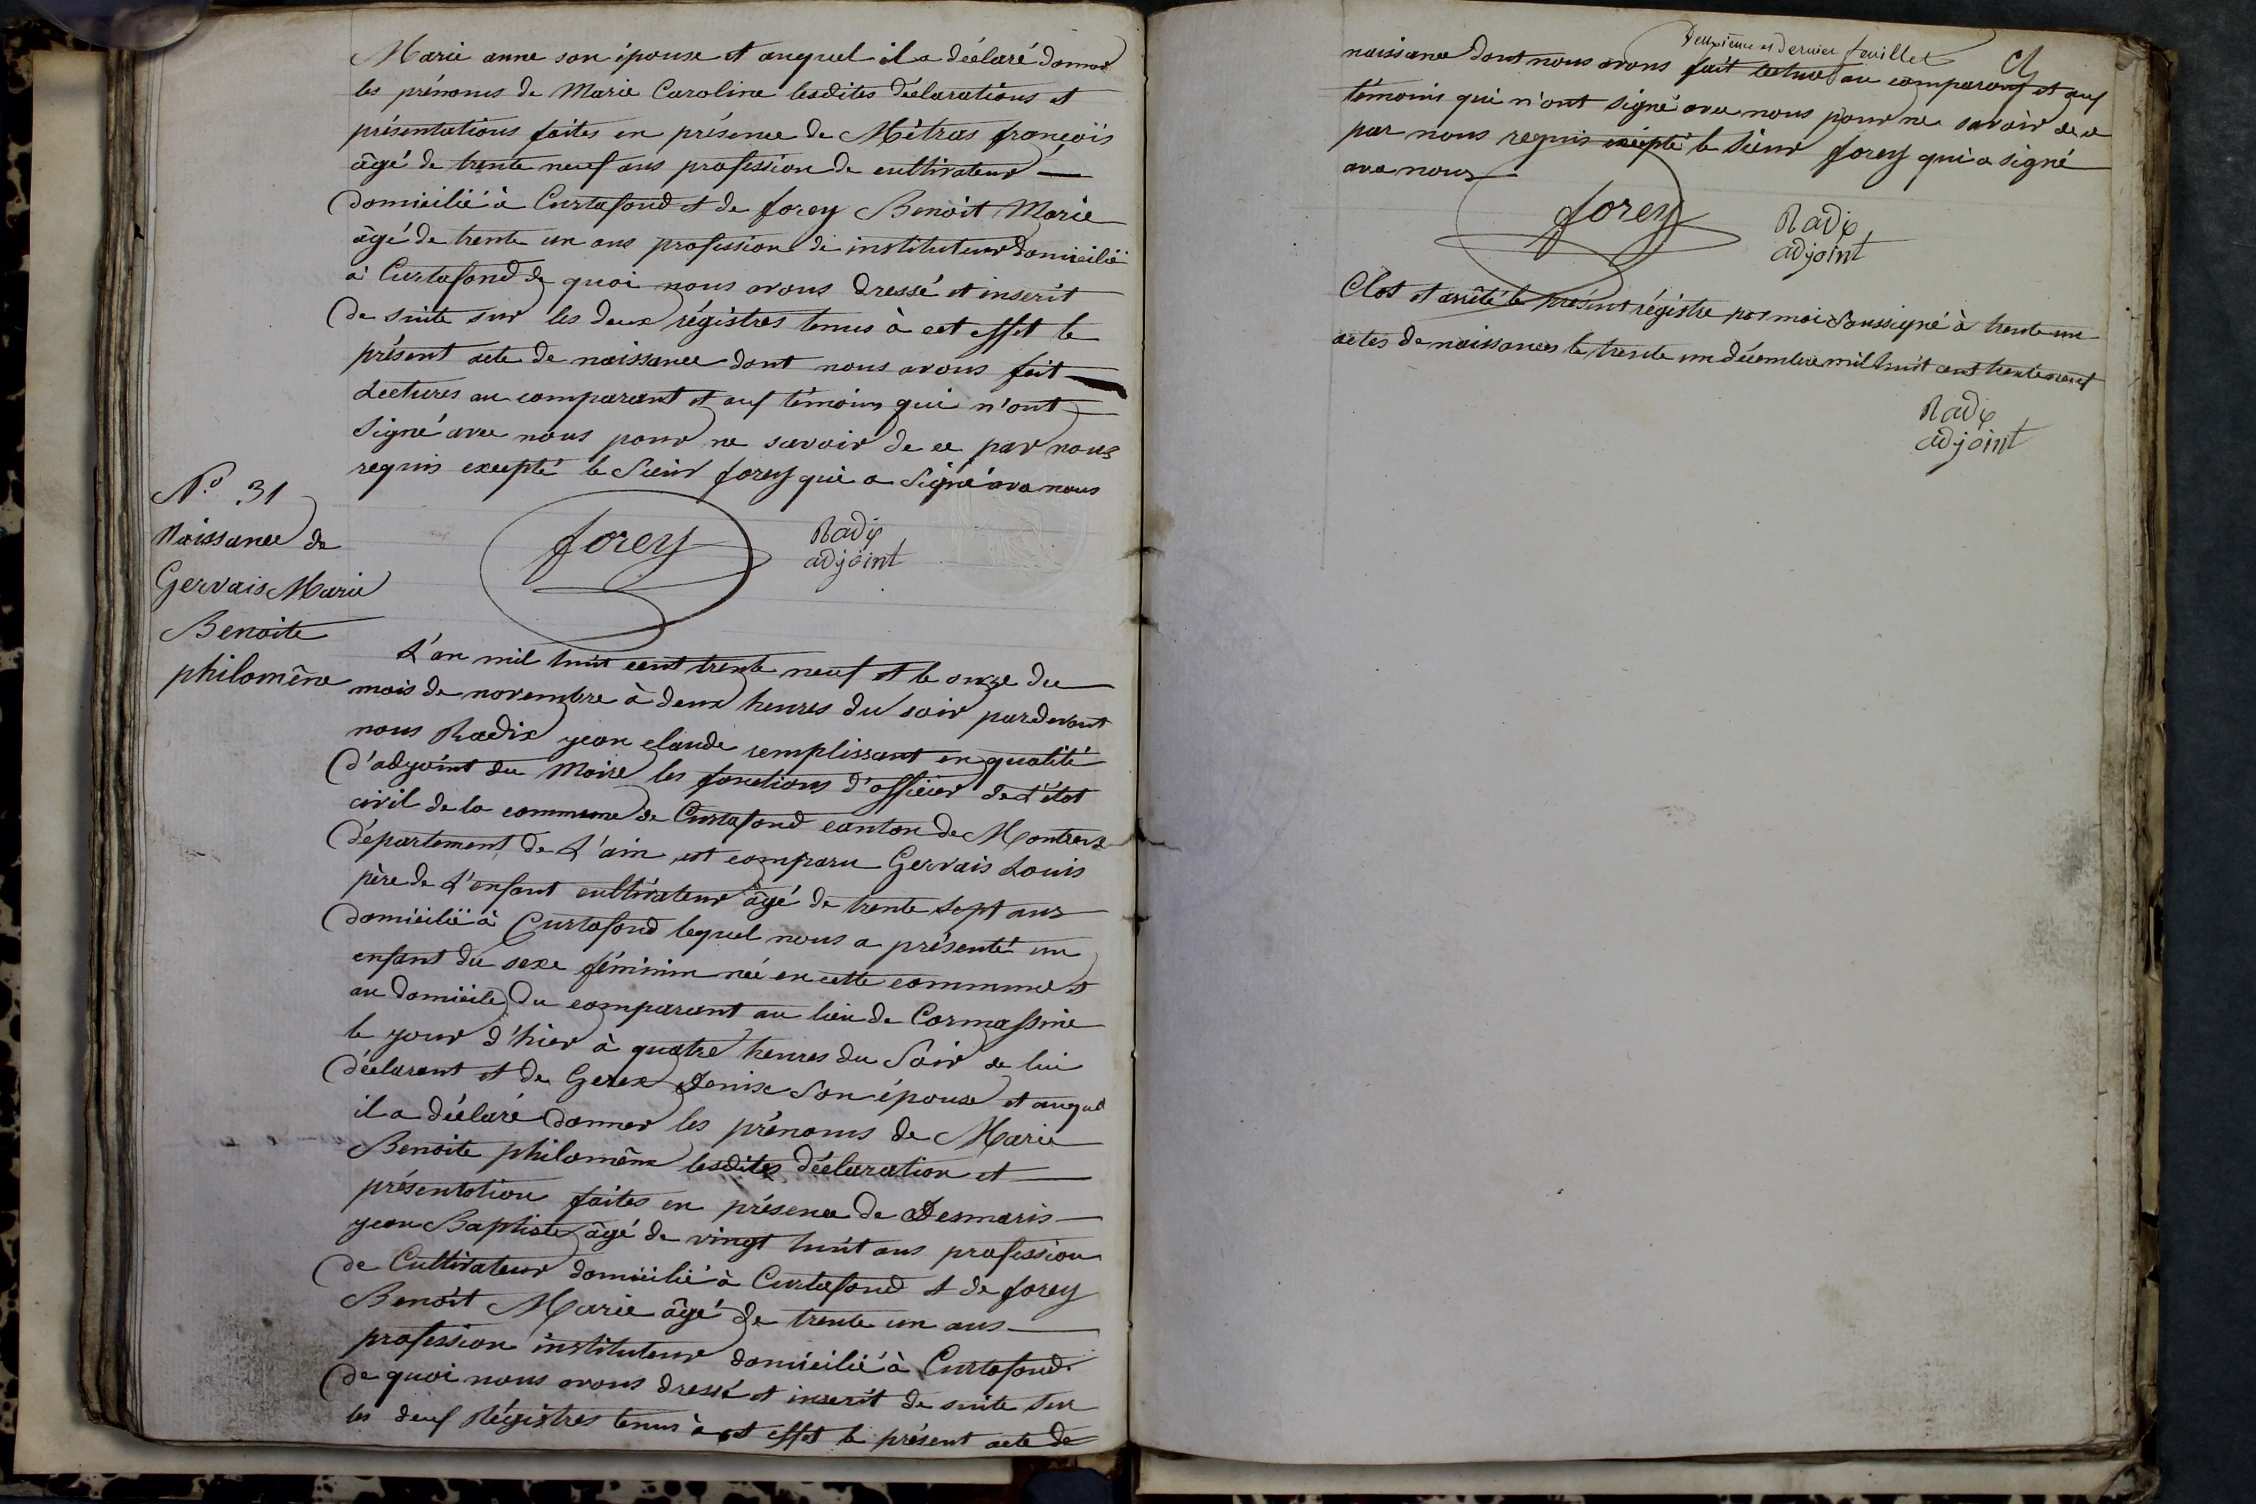 Marie anne son épouse et auquel il a déclaré donner
les prénoms de Marie Caroline lesdites déclarations et
présentations faites en présence de Métras françois
âgé de trente neuf ans profession de cultivateur
domicilié à Curtafond et de forey Benoit Marie
âgé de trente un ans profession de instituteur domicilié
à Curtafond de quoi nous avons dressé et inscrit
de suite sur les deux régistres tenus à cet effet le
présent acte de naissance dont nous avons fait
Lectures au comparant et aux témoins qui n'ont
Signé avec nous pour ne savoir de ce par nous
requis excepté le Sieur forey qui a Signé avec nous
forey
Radix
adjoint
N.o 31
Naissance de
Gervais Marie
Benoite
philomène
L'an mil huit cent trente neuf et le onze du
mois de novembre à deux heures du soir pardevant
nous Radix jean claude remplissant en qualité
d'adjoint du Maire les fonctions d'officier de L'état
civil de la commune de Curtafond canton de Montrevel
département de L'ain est comparu Gervais Louis
père de L'enfant cultivateur âgé de trente sept ans
domicilié à Curtafond lequel nous a présenté un
enfant du sexe féminin née en cette commune et
au domicile du comparant au lieu de Cormassine
le jour d'hier à quatre heures du Soir de lui
déclarant et de Gerex Denise Son épouse et auquel
il a déclaré donner les prénoms de Marie
Benoite philomène lesdites déclaration et
présentation faites en présence de Desmaris
jean Baptiste âgé de vingt huit ans profession
de Cultivateur domicilié à Curtafond et de forey
Benoit Marie âgé de trente un ans
profession instituteur domicilié à Curtafond
de quoi nous avons dressé et inscrit de suite sur
les deux Régistres tenus à cet effet le présent acte de
Deuxième et dernier feuillet
naissance dont nous avons fait lecture au comparant et aux
témoins qui n'ont signé avec nous pour ne savoir de ce
par nous requis excepté le Sieur forey qui a signé
avec nous
forey
Radix
adjoint
Clos et arrêté le présent régistre par moi Soussigné à trente un
actes de naissances le trente un décembre mil huit cent trente neuf
Radix
adjoint